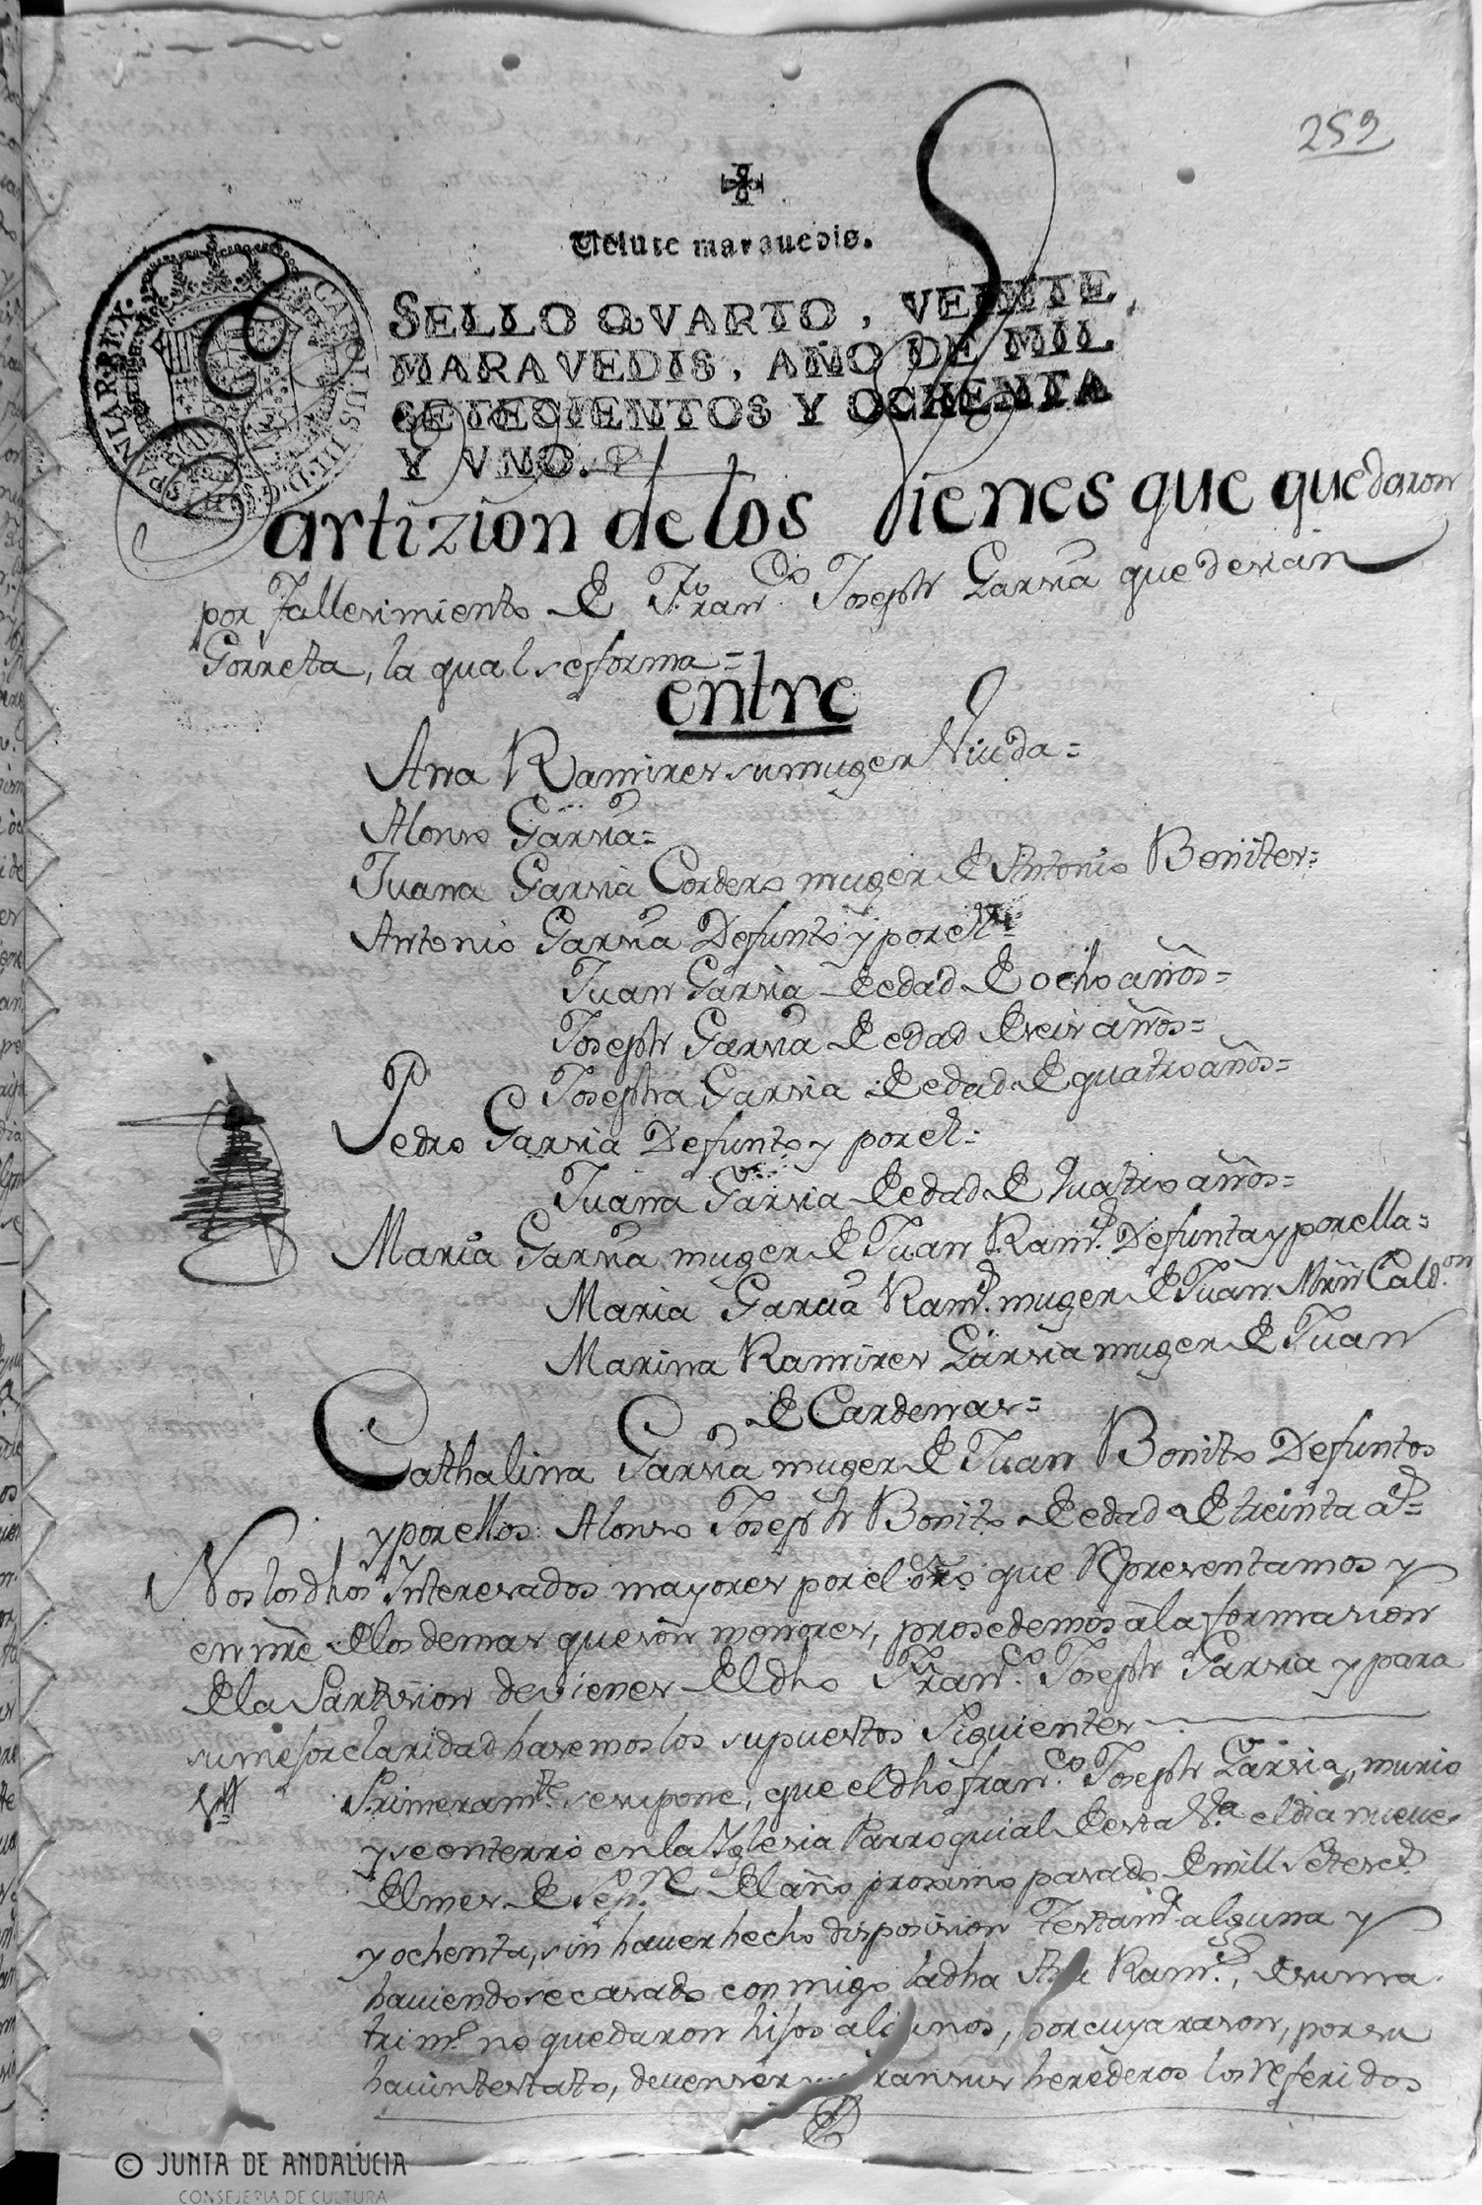 259
Veinte maravedis.
SELLO QVARTO, VEINTE
MARAVEDIS, AÑO DE MIL
SETECIENTOS Y OCHENTA
Y VNO.
CAROLUS III. D. G. HISPANIAR. REX.
Partizion de los Bienes que quedaron
por fallesimiento de Franco. Joseph Garsia que desian
Gorreta, la qual se forma =
entre
Ana Ramires su muger Viuda =
Alonso Garsia =
Juana Garsia Cordero muger de Antonio Benites =
Antonio Garsia Defunto y por el =
Juan Garsia de edad de ocho años =
Joseph Garsia de edad de seis años =
Josepha Garsia de edad de quatro años =
Pedro Garsia Defunto y por el =
Juana Garsia de edad de quatro años =
Maria Garsia muger de Juan Rams. Defunta y por ella =
Maria Garsia Rams. muger de Juan Mrn Caldon.
Marina Ramires Garsia muger de Juan
de Cardenas =
Cathalina Garsia muger de Juan Bonito Defuntos
y por ellos: Alonso Joseph Bonito de edad de treinta as. =
Nos los dhos Interesados mayores por el dro. que Representamos y
en nre de los demas que son menores, prosedemos à la formasion
de la Partision de vienes del dho Franco. Joseph Garsia y para
su mejor claridad hasemos los supuestos Siguientes
1º Primeramte. se supone, que el dho Franco. Joseph Garsia, murio
y se enterro en la Iglesia Parroquial de esta Va. el dia nueve
del mes de Sepre. del año proximo pasado de mill Setesets.
y ochenta, sin haver hecho disposision Testamta. alguna y
haviendose casado conmigo la dha Ana Rams., de su ma
trimo. no quedaron hijos algunos, por cuya rason, por su
havintestato, deven ser herederos los referidos
© JUNTA DE ANDALUCIA
CONSEJERIA DE CULTURA